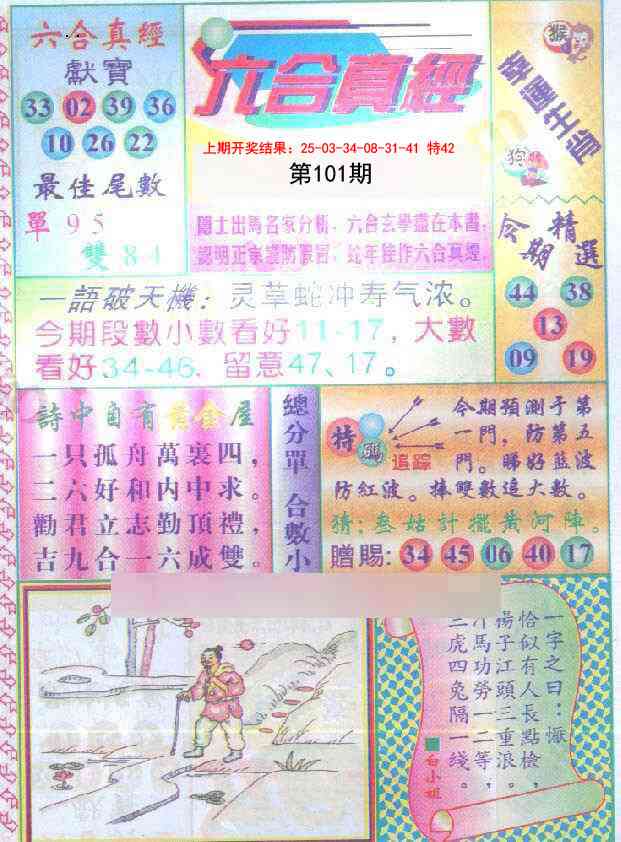 六合真經
獻寶
33 02 39 36
10 26 22
最佳尾數
單 9 5
雙 8 4
六合真經
上期开奖结果: 25-03-34-08-31-41 特42
第101期
隱士出馬名家分析，六合玄學盡在本書，
認明正宗謹防假冒，蛇年佳作六合真經。
猴
幸運生肖
狗
今期精選
44 38
13
09 19
一語破天機：灵草蛇冲寿气浓。
今期段數小數看好11-17，大數
看好34-46，留意47、17。
詩中自有黃金屋
一只孤舟萬裏四，
二六好和内中求。
勸君立志勤頂禮，
吉九合一六成雙。
總分單 合數小
特碼
追踪
今期預測于第
一門，防第五
門。睇好藍波
防紅波。捧雙數追大數。
猜：叁姑計擺黃河陣。
贈賜: 34 45 06 40 17
一字之曰：慨
恰似有人長點檢，
楊子江頭三重浪，
汗馬功勞一二等，
三虎四兔隔一綫。
白小姐